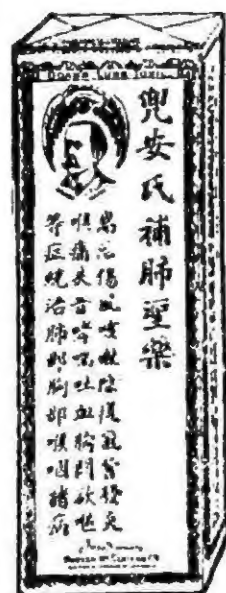 DOAN'S LUNG TONIC
兜安氏補肺聖藥
傷風咳嗽氣管發炎
喉痛失音哮喘吐血胸悶欲嘔
等症統治肺部胸部喉咽諸病